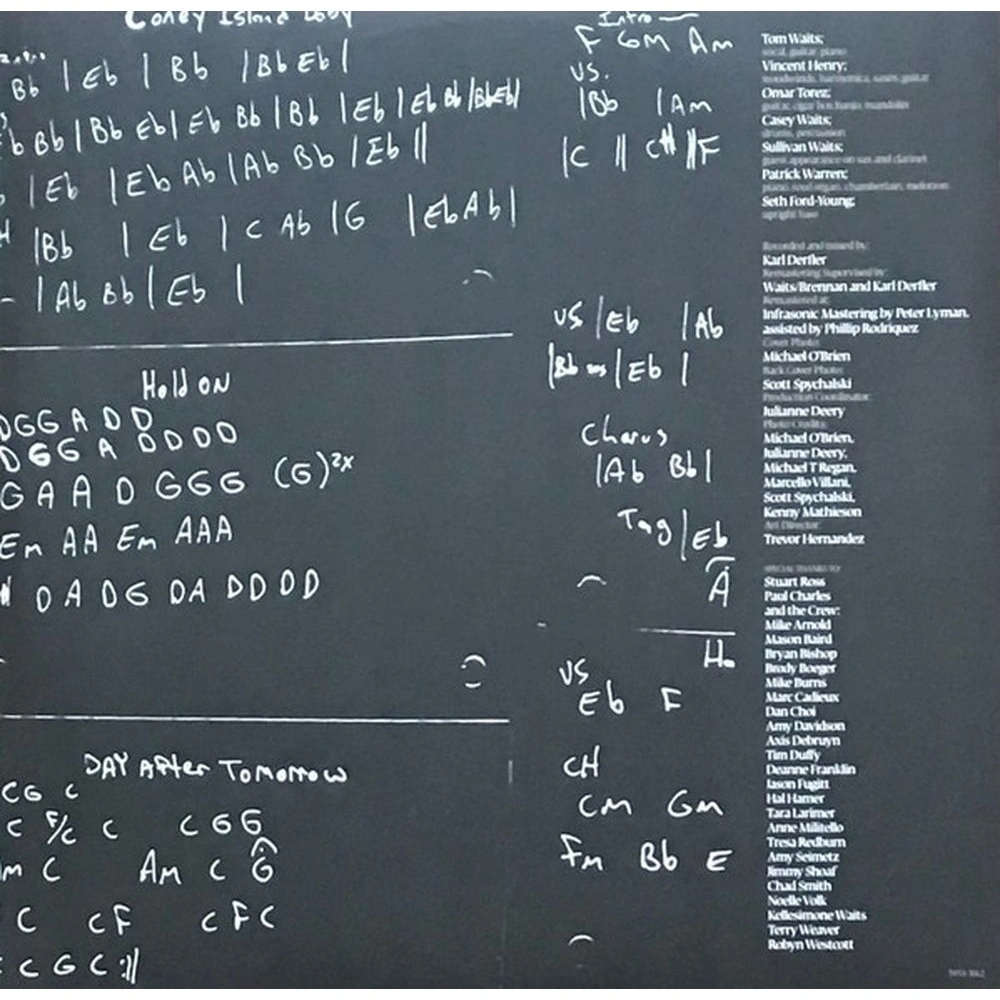 Coney Island Baby
Bb | Eb | Bb | Bb Eb |
b Bb | Bb Eb | Eb Bb | Bb | Eb | Eb Bb | Bb Eb |
| Eb | Eb Ab | Ab Bb | Eb ||
| Bb | Eb | C Ab | G | Eb Ab |
- | Ab Bb | Eb |
Hold ON
DGG A D D
D G G A D D D D
G A A D G G G (G)2x
Em AA Em AAA
D A D G D A D D D D
DAY AFTer TOMORROW
CG C
C F/C C C G G
m C Am C G
C C F C F C
C G C :||
Intro —
F Gm Am
VS.
| Bb | Am
| C || CH || F
VS | Eb | Ab
| Bb | Eb |
Chorus
| Ab Bb |
Tag | Eb
A
VS
Eb F
CH
Cm Gm
Fm Bb E
Tom Waits:
vocal, guitar, piano
Vincent Henry:
woodwinds, harmonica, saxes, guitar
Omar Torez:
guitar, cigar box banjo, mandolin
Casey Waits:
drums, percussion
Sullivan Waits:
guest appearance on sax and clarinet
Patrick Warren:
piano, soul organ, chamberlain, melotron
Seth Ford-Young:
upright bass
Recorded and mixed by:
Karl Derfler
Remastering Supervised by:
Waits/Brennan and Karl Derfler
Remastered at:
Infrasonic Mastering by Peter Lyman,
assisted by Phillip Rodriquez
Cover Photo:
Michael O'Brien
Back Cover Photo:
Scott Spychalski
Production Coordinator:
Julianne Deery
Photo Credits:
Michael O'Brien,
Julianne Deery,
Michael T Regan,
Marcello Villani,
Scott Spychalski,
Kenny Mathieson
Art Director:
Trevor Hernandez
SPECIAL THANKS TO:
Stuart Ross
Paul Charles
and the Crew:
Mike Arnold
Mason Baird
Bryan Bishop
Brody Boeger
Mike Burns
Marc Cadieux
Dan Choi
Amy Davidson
Axis Debruyn
Tim Duffy
Deanne Franklin
Jason Fugitt
Hal Hamer
Tara Larimer
Anne Militello
Tresa Redburn
Amy Seimetz
Jimmy Shoaf
Chad Smith
Noelle Volk
Kellesimone Waits
Terry Weaver
Robyn Westcott